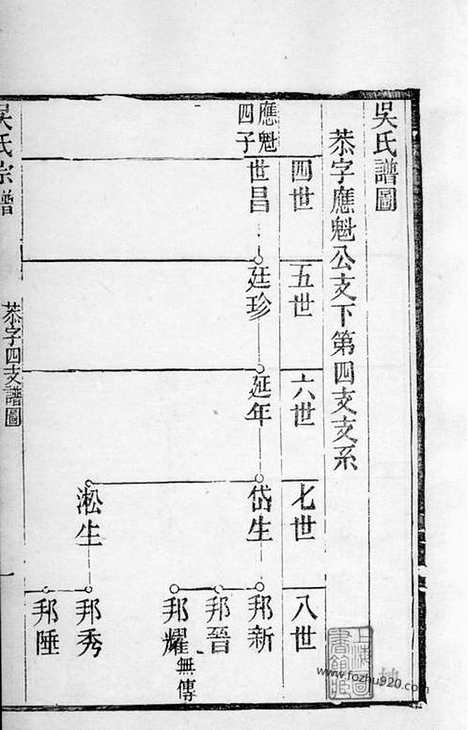 吳氏譜圖
恭字應魁公支下第四支支系
四世
五世
六世
七世
八世
應魁
四子
世昌
廷珍
延年
岱生
邦新
邦晉
邦耀
無傳
淞生
邦秀
邦陲
吳氏宗譜
恭字四支譜圖
一
www.fozhu920.com